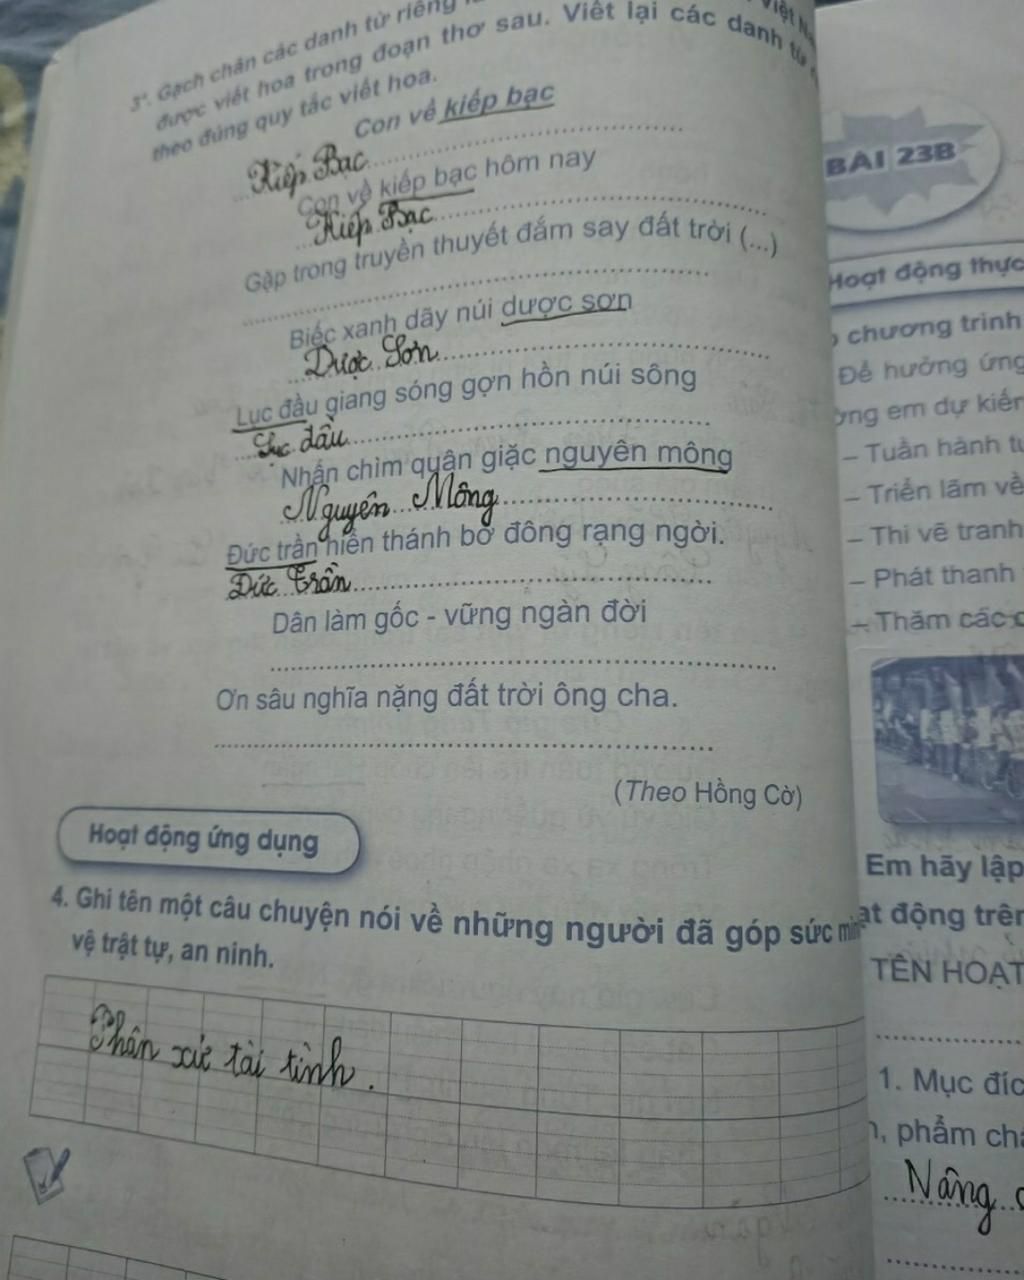 3*. Gạch chân các danh từ riêng
Việt
được viết hoa trong đoạn thơ sau. Viết lại các danh từ
theo đúng quy tắc viết hoa.
Con về kiếp bạc
Kiếp Bạc
Con về kiếp bạc hôm nay
Kiếp Bạc
Gặp trong truyền thuyết đắm say đất trời (...)
Biếc xanh dãy núi dược sơn
Dược Sơn
Lục đầu giang sóng gợn hồn núi sông
Lục đầu
Nhấn chìm quân giặc nguyên mông
Nguyên Mông
Đức trần hiển thánh bờ đông rạng ngời.
Đức Trần
Dân làm gốc - vững ngàn đời
Ơn sâu nghĩa nặng đất trời ông cha.
(Theo Hồng Cờ)
Hoạt động ứng dụng
4. Ghi tên một câu chuyện nói về những người đã góp sức
vệ trật tự, an ninh.
Phân xử tài tình.
BÀI 23B
Hoạt động thực
chương trình
Để hưởng ứng
em dự kiến
– Tuần hành
– Triển lãm về
– Thi vẽ tranh
– Phát thanh
– Thăm các
Em hãy lập
động trên
TÊN HOẠT
1. Mục đíc
phẩm
Nâng